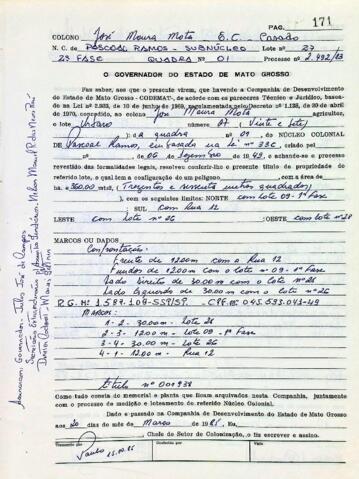 PAG. 171
COLONO José Moura Mota S.C. Casado
N. C. de PASCOAL RAMOS - SUBNÚCLEO Lote n.o 27
2ª FASE QUADRA Nº 01 Processo n.o 2.492/83
O GOVERNADOR DO ESTADO DE MATO GROSSO:
Faz saber, aos que o presente virem, que havendo a Companhia de Desenvolvimento
do Estado de Mato Grosso - CODEMAT, de acordo com os pareceres Técnico e Jurídico, baseada
na Lei n.o 2.933, de 10 de junho de 1969, regulamentada pelo Decreto n.o 1.138, de 20 de abril
de 1970, concedido ao colono José Moura Mota agricultor,
o lote Urbano número 27 (Vinte e Sete)
a quadra nº 01 do NÚCLEO COLONIAL
de Pascoal Ramos, embasado na Lei nº 336
de 06 de Dezembro de 1949, e achando-se o processo
revestido das formalidades legais, resolveu conferir-lhe o presente título de propriedade do
referido lote, o qual tem a configuração de um polígono com a área de
ha. 360,00 mts2 (Trezentos e sessenta metros quadrados)
com os seguintes limites: NORTE com lote 09-1ª Fase
SUL com Rua 12
LESTE com lote nº 26 OESTE com lote nº 28
MARCOS OU DADOS
Confrontação:
Frente de 12.00m com a Rua 12
Fundos de 12.00m com o lote nº 09-1ª Fase
Lado Direito de 30.00m com o lote nº 28
Lado Esquerdo de 30.00m com o lote nº 26
R.G. Nº 1.587.109-SSP/SP. CPF. Nº 045.593.041-49
Marcos:
1 - 2 - 30.00m - Lote 28
2 - 3 - 12.00m - Lote 09 - 1ª Fase
3 - 4 - 30.00m - Lote 26
4 - 1 - 12.00m - Rua 12
Título nº 001938
Como tudo consta do memorial e planta que ficam arquivados nesta Companhia, juntamente
com o processo de medição e loteamento do referido Núcleo Colonial.
Dado e passado na Companhia de Desenvolvimento do Estado de Mato Grosso
aos 20 dias do mês de Março de 1986. Eu,
Chefe do Setor de Colonização, o fiz escrever e assino.
Assinaram: Governador: Julio José de Campos